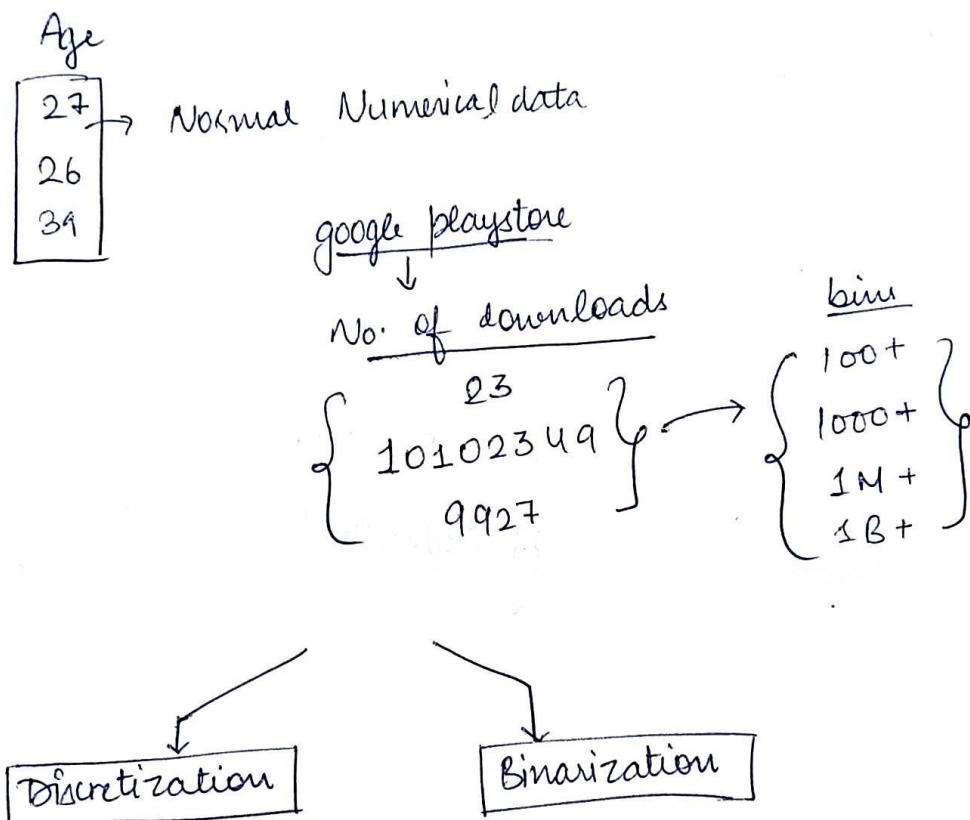 Age
27 → Normal Numerical data
26
39
google playstore
↓
No. of downloads
23
10102349
9927
→
bins
100+
1000+
1M+
1B+
Discretization
Binarization